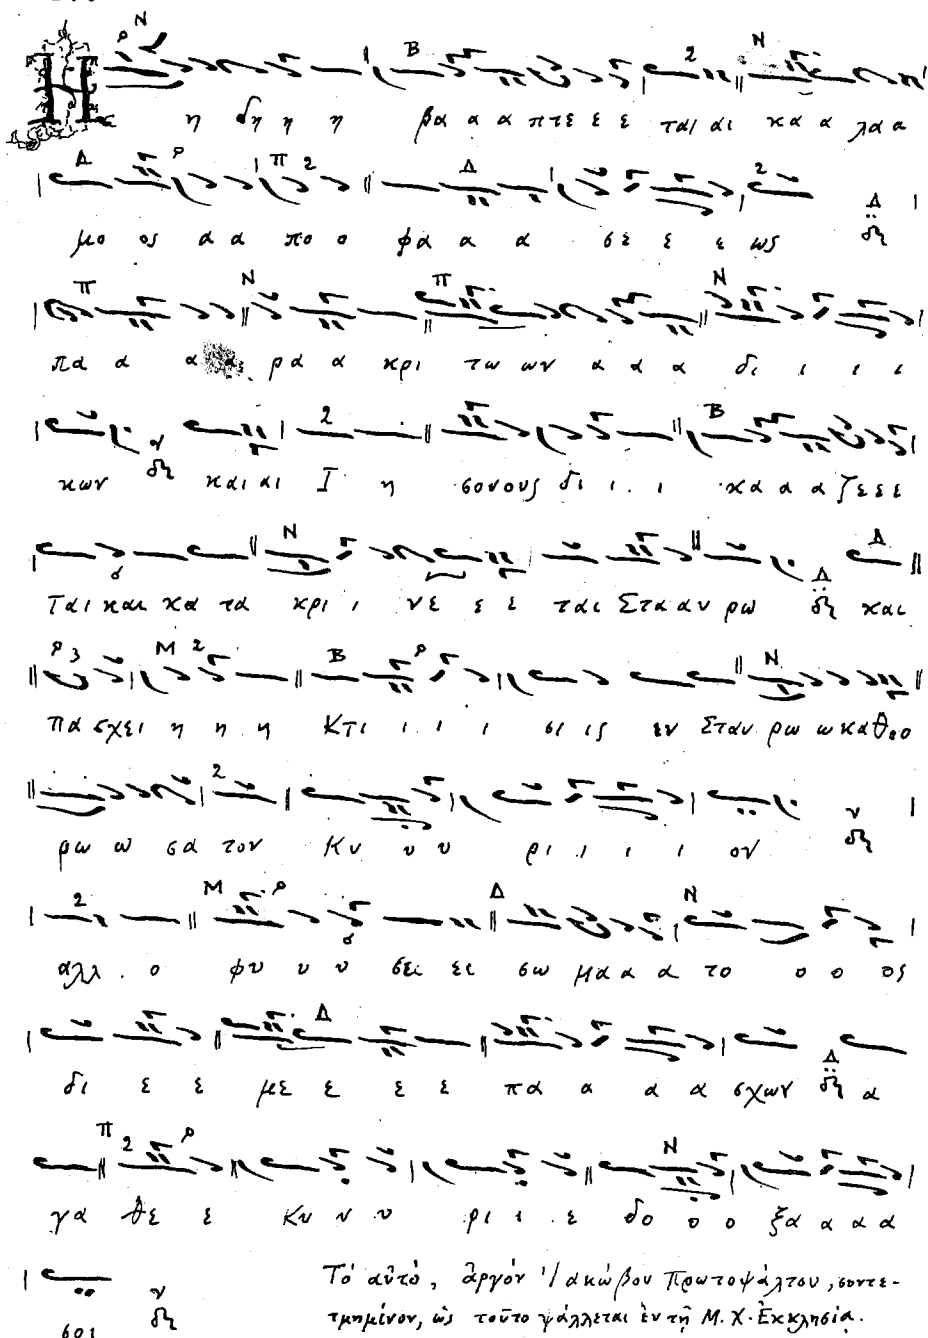 Η κ η δη η η βα α α πτε ε ε ται αι κα α λα α
μο ος α α πο ο φα α α σε ε ε ως
πα α α α ρα α κρι τω ων α α α δι ι ι ι
κων και αι Ι η σουνους δι ι ι ι κα α α ζε ε ε
ται και κα τα κρι ι νε ε ε ται Στα αυ ρω και
πα σχει η η η Κτι ι ι ι σι ις εν Σταυ ρω ω κα θο ο
ρω ω σα τον Κυ υ υ υ ρι ι ι ι ι ον
αλλ ο φυ υ υ υ σει ει σω μα α α α το ο ο ος
δι ε ε με ε ε ε πα α α α σχων α
γα θε ε Κυ υ υ ρι ι ε δο ο ο ξα α α α
σοι
Τό αὐτό, ἀργόν Ἰακώβου Πρωτοψάλτου, συντε-
τμημένον, ὡς τοῦτο ψάλλεται ἐν τῇ Μ. Χ. Ἐκκλησίᾳ.